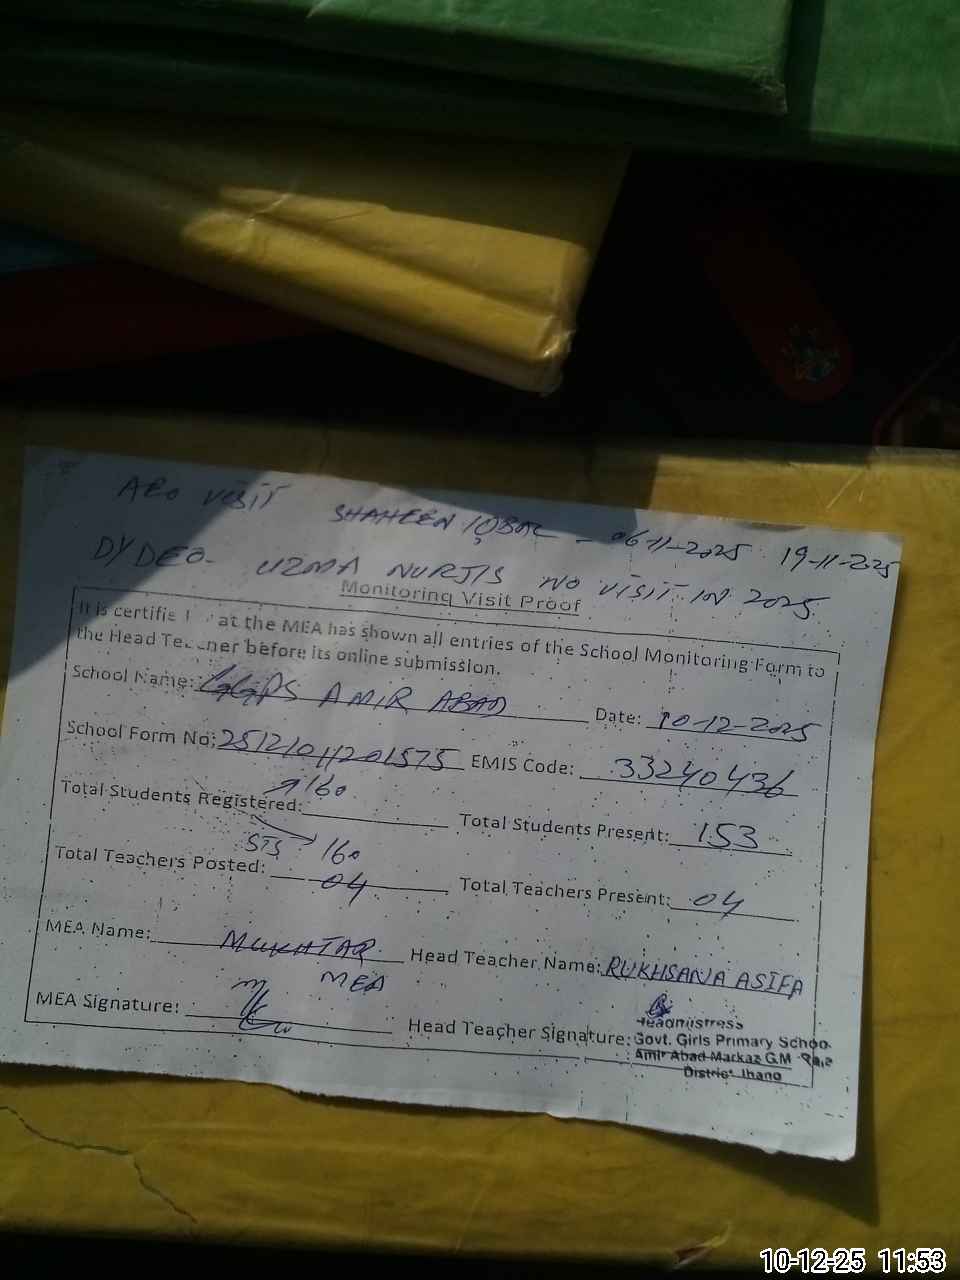 AEO VISIT SHAHEEN IQBAL - 06-11-2025 19-11-2025
DYDEO- UZMA NURJIS NO VISIT IN 2025
Monitoring Visit Proof
It is certified that the MEA has shown all entries of the School Monitoring Form to
the Head Teacher before its online submission.
School Name: GGPS AMIR ABAD Date: 10-12-2025
School Form No: EMIS Code: 33240436
160
Total Students Registered: Total Students Present: 153
STS 160
Total Teachers Posted: 04 Total Teachers Present: 04
MEA Name: MUKHTAR Head Teacher Name: RUKHSANA ASIFA
MEA
MEA Signature: Head Teacher Signature:
Headmistress
Govt. Girls Primary School
Amir Abad Markaz G.M
District Jhang
10-12-25 11:53